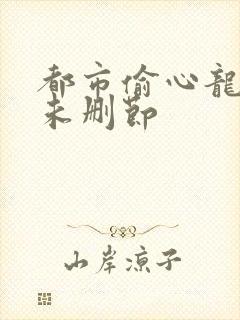 都市偷心龍
未删節
山岸凉子